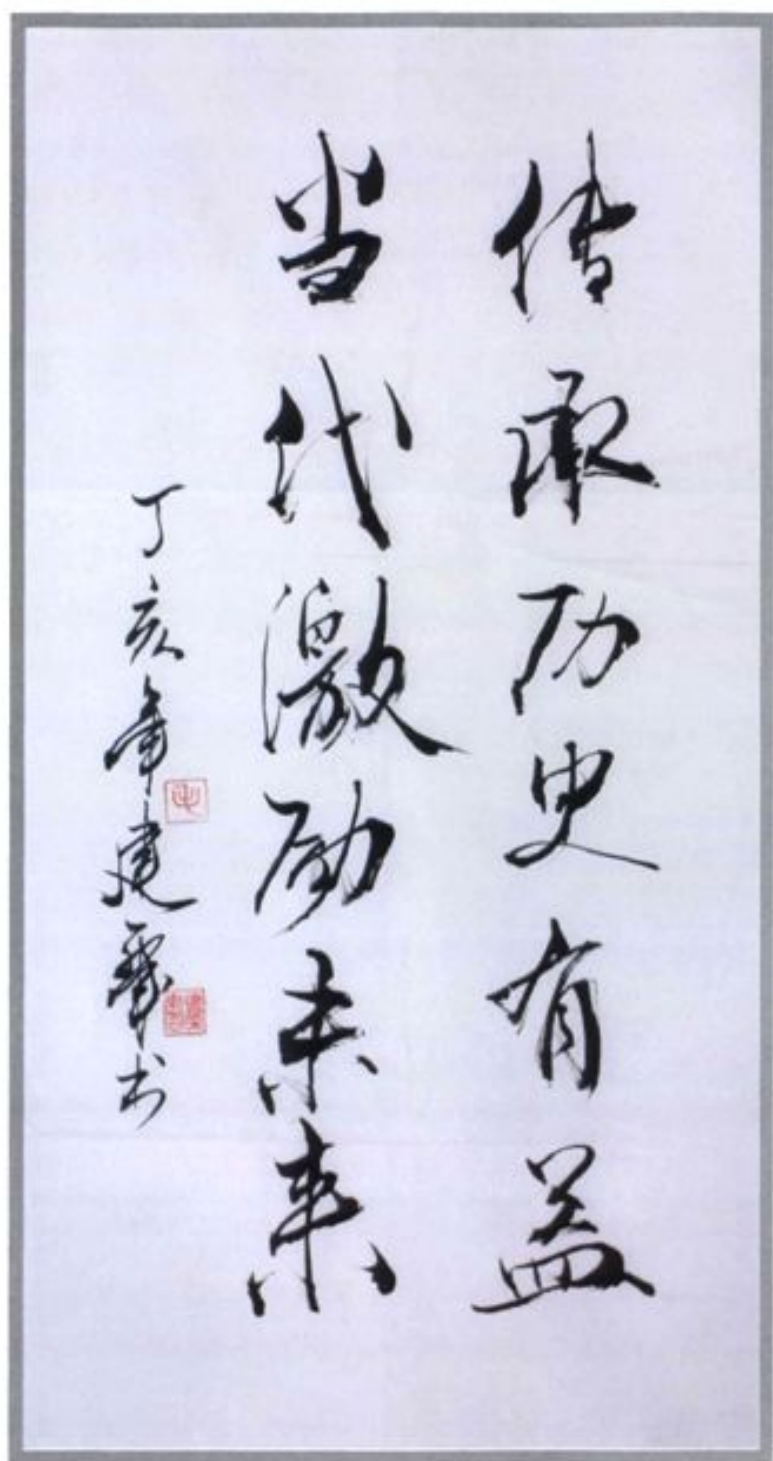 传承历史有益
当代激励未来
丁亥年建军书